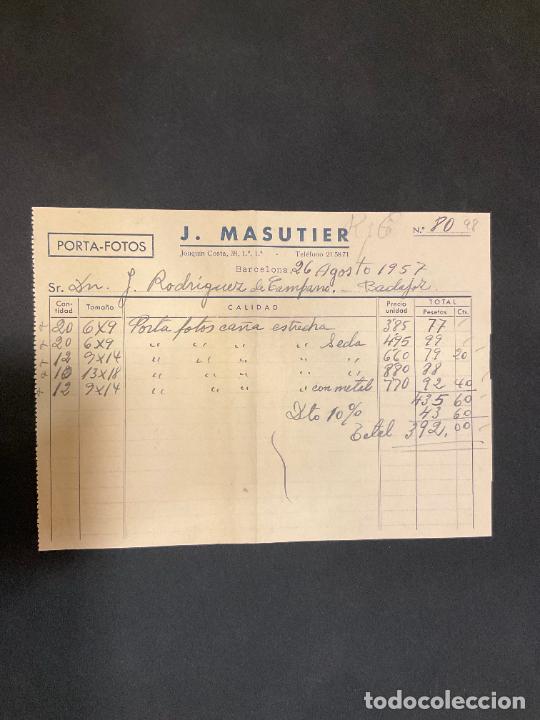 PORTA-FOTOS
J. MASUTIER
N.º 80 98
Joaquín Costa, 38, 1.º, 1.ª - Teléfono 21 58 71
Barcelona, 26 Agosto 1957
Sr. Dn. J. Rodríguez de Tampane. - Badajoz.
Cantidad Tamaño CALIDAD Precio unidad TOTAL Pesetas Cts.
20 6x9 Porta fotos caña estrecha 3'85 77
20 6x9 " " " " Seda 4'95 99
12 9x14 " " " " " 6'60 79 20
10 13x18 " " " " " 8'80 88
12 9x14 " " " " con metal 7'70 92 40
435 60
Dto 10% 43 60
Total 392,00
todocoleccion.net